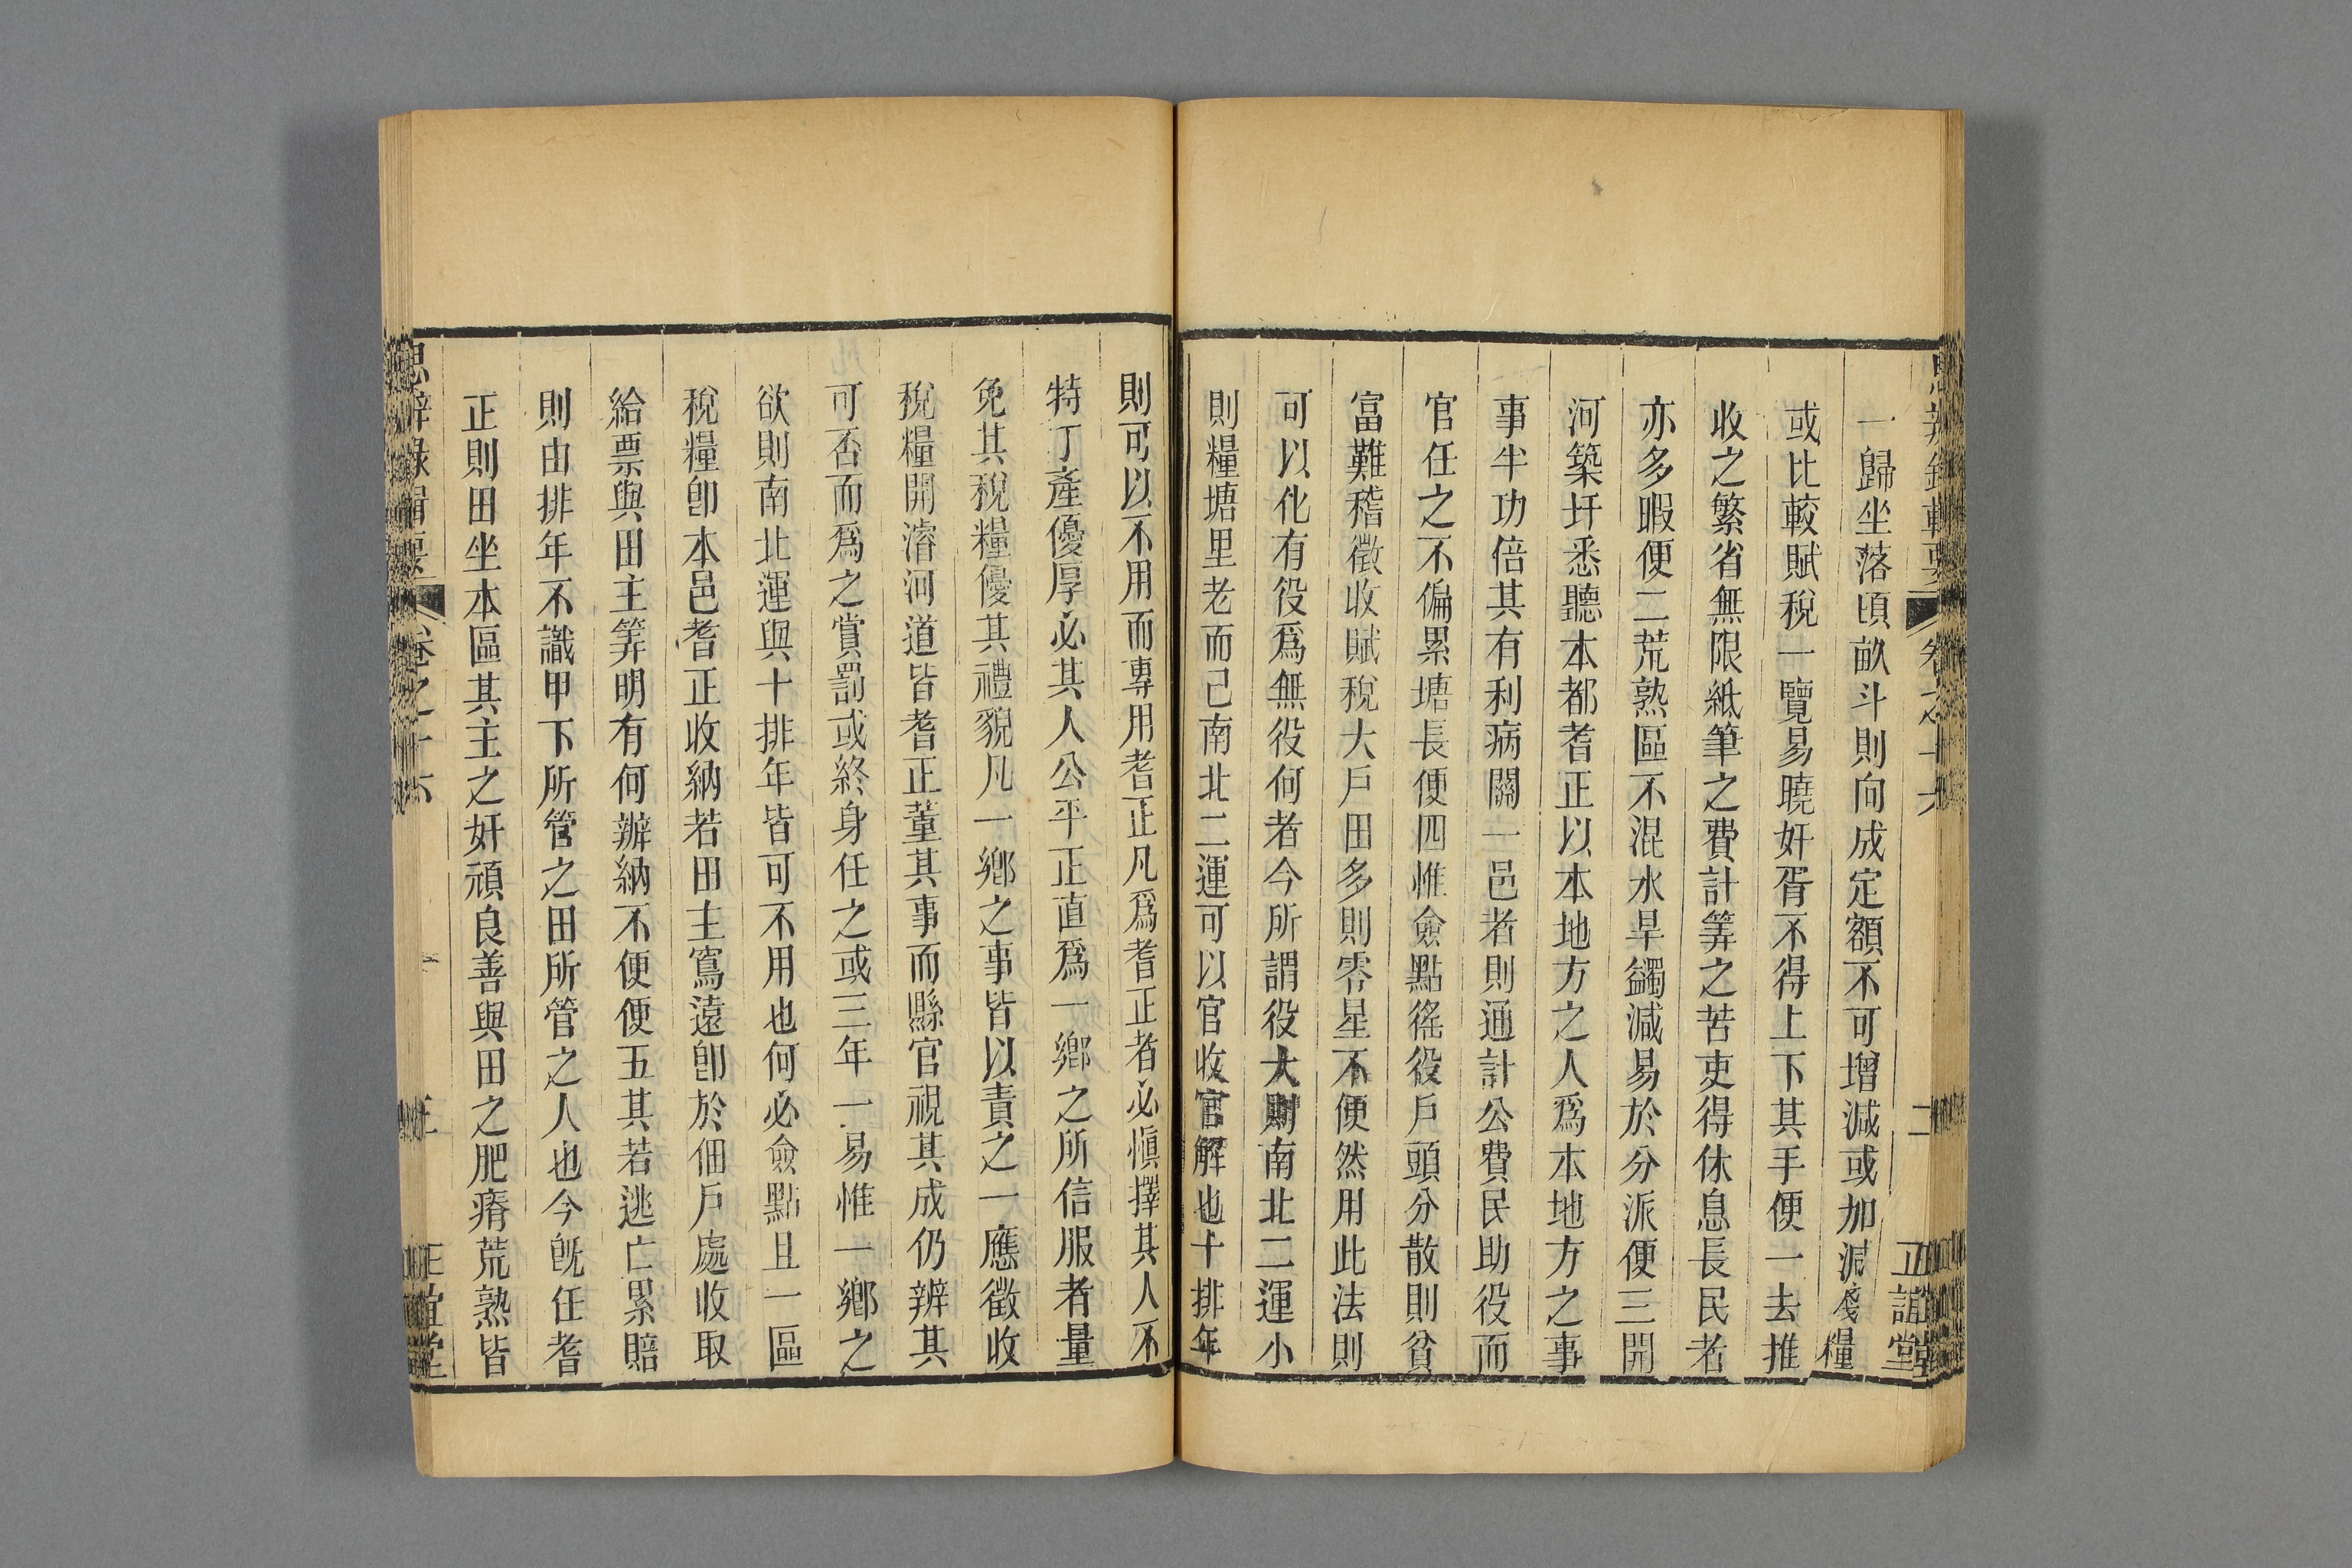 一歸坐落頃畝斗則向成定額不可增減或加泥廢糧
或比較賦稅一覽易曉奸胥不得上下其手便一去推
收之繁省無限紙筆之費計筭之苦吏得休息長民者
亦多暇便二荒熟區不混水旱蠲減易於分派便三開
河築圩悉聽本都耆正以本地方之人爲本地方之事
事半功倍其有利病關一邑者則通計公費民助役而
官任之不偏累塘長便四惟僉點徭役戶頭分散則貧
富難稽徵收賦稅大戶田多則零星不便然用此法則
可以化有役爲無役何者今所謂役大則南北二運小
則糧塘里老而已南北二運可以官收官解也十排年
則可以不用而專用耆正凡爲耆正者必愼擇其人不
特丁產優厚必其人公平正直爲一鄉之所信服者量
免其稅糧優其禮貌凡一鄉之事皆以責之一應徵收
稅糧開濬河道皆耆正董其事而縣官視其成仍辨其
可否而爲之賞罰或終身任之或三年一易惟一鄉之
欲則南北運與十排年皆可不用也何必僉點且一區
稅糧卽本邑耆正收納若田主寫遠卽於佃戶處收取
給票與田主筭明有何辦納不便便五其若逃亡累賠
則由排年不識甲下所管之田所管之人也今旣任耆
正則田坐本區其主之奸頑良善與田之肥瘠荒熟皆
思辨錄輯要 卷之十六 二 正誼堂